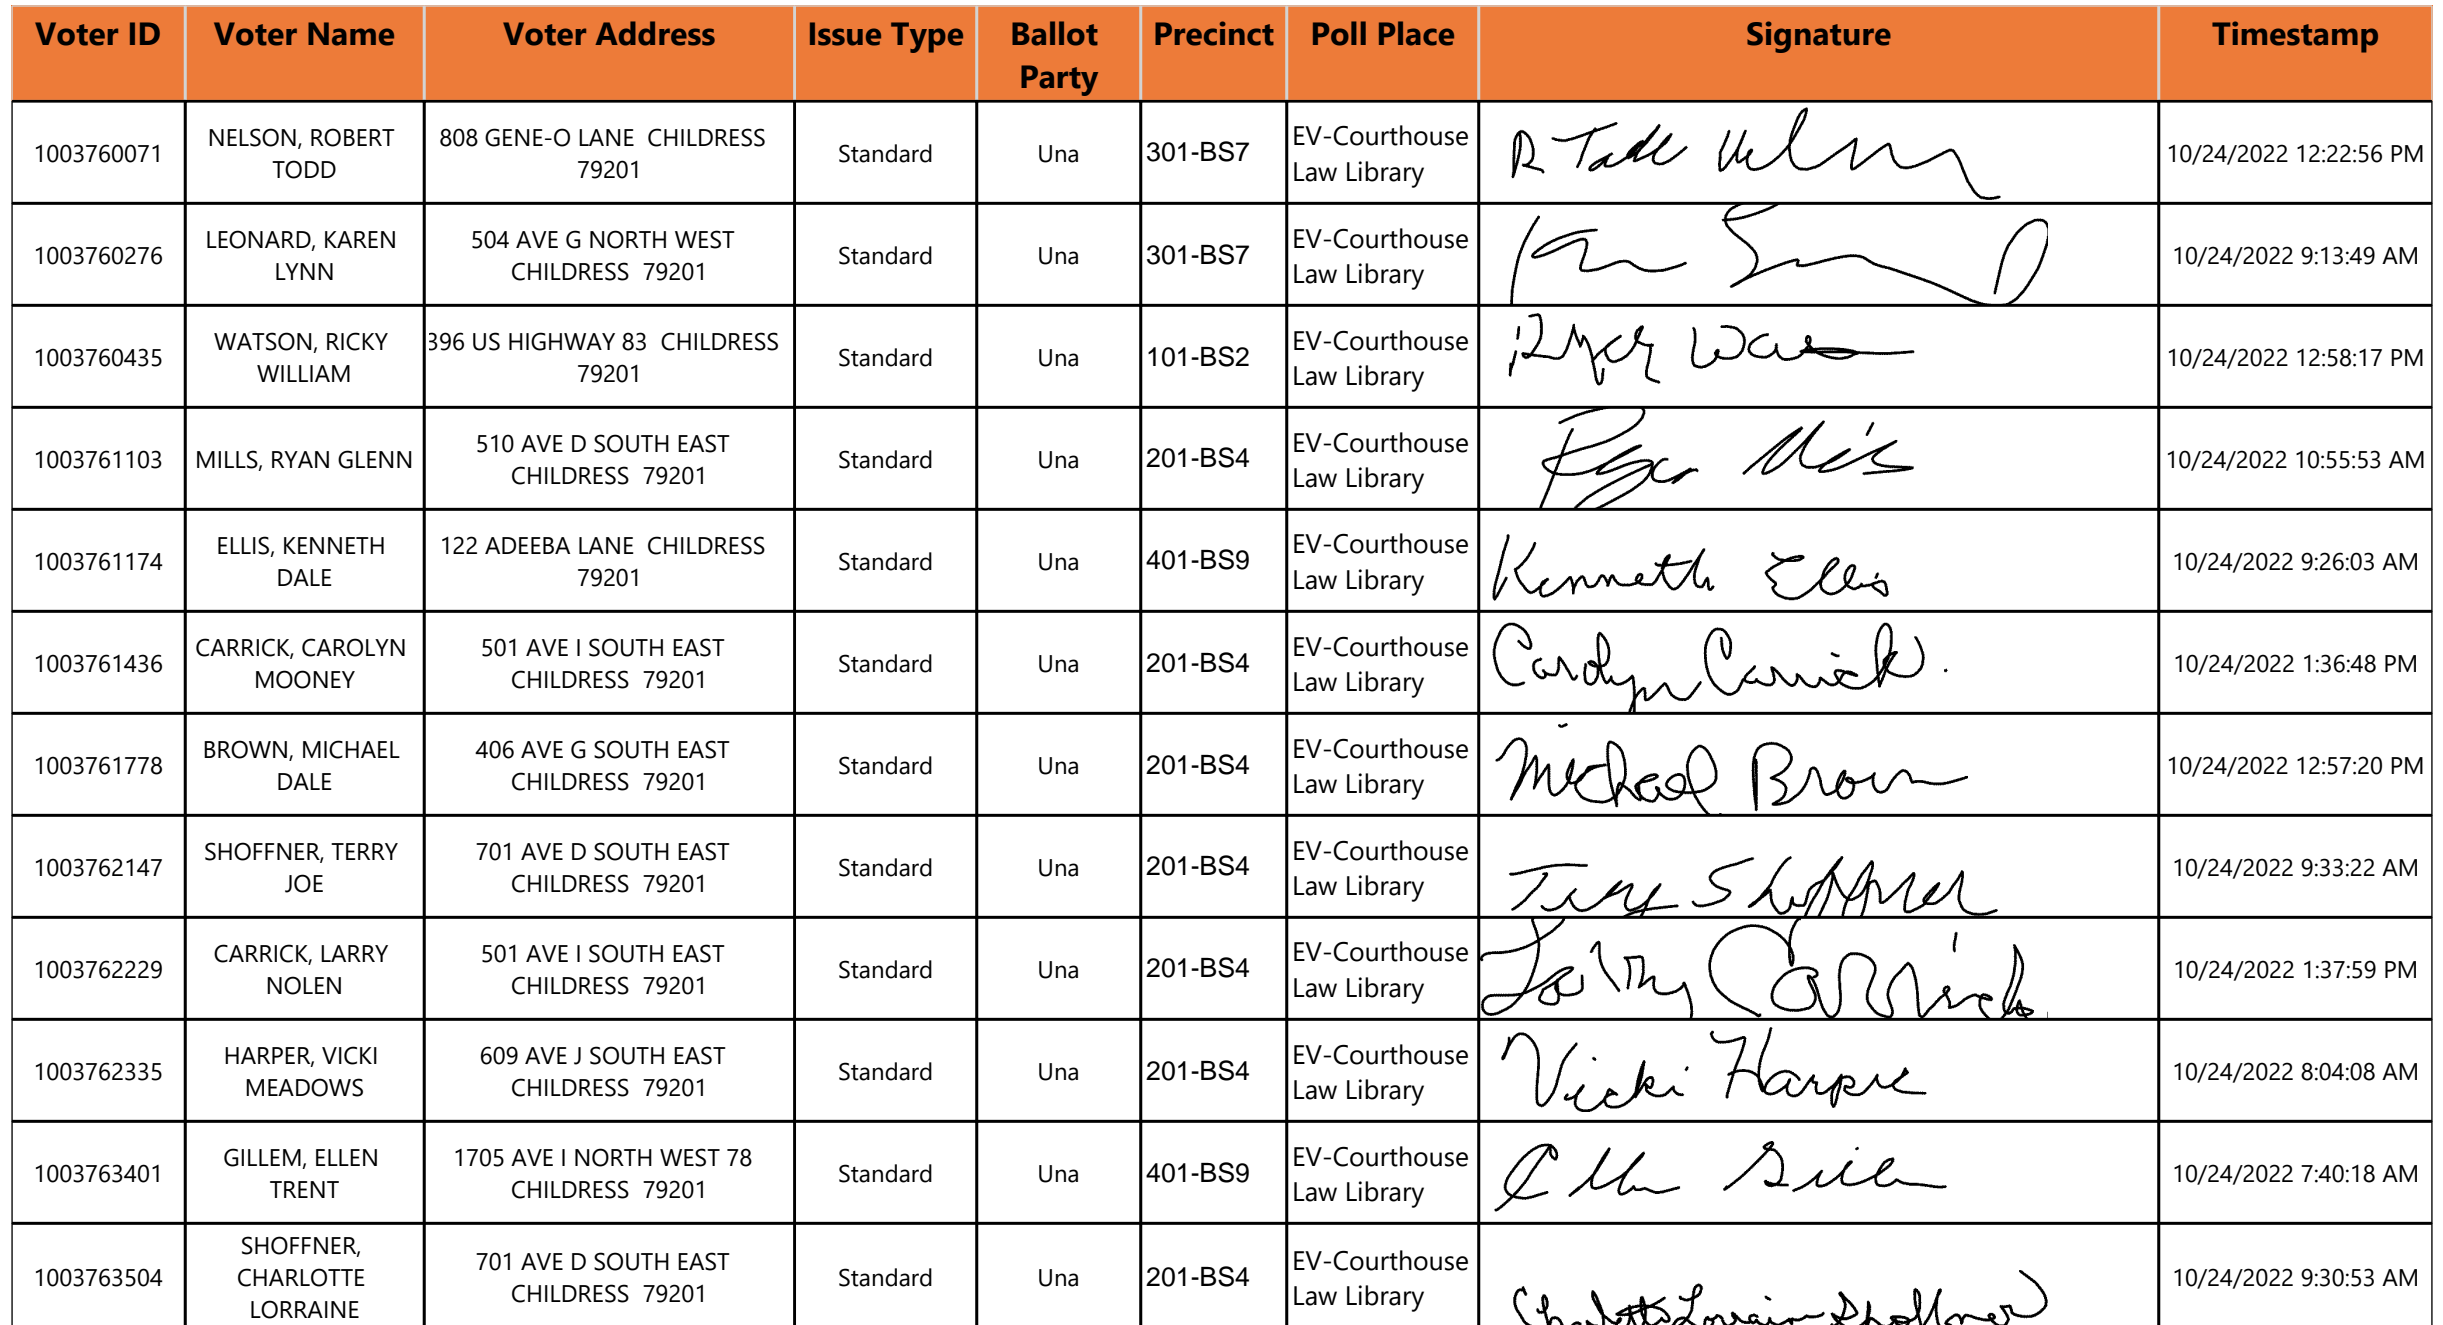 Voter ID Voter Name Voter Address Issue Type Ballot Party Precinct Poll Place Signature Timestamp
1003760071 NELSON, ROBERT TODD 808 GENE-O LANE CHILDRESS 79201 Standard Una 301-BS7 EV-Courthouse Law Library R Todd Nelson 10/24/2022 12:22:56 PM
1003760276 LEONARD, KAREN LYNN 504 AVE G NORTH WEST CHILDRESS 79201 Standard Una 301-BS7 EV-Courthouse Law Library 10/24/2022 9:13:49 AM
1003760435 WATSON, RICKY WILLIAM 396 US HIGHWAY 83 CHILDRESS 79201 Standard Una 101-BS2 EV-Courthouse Law Library 10/24/2022 12:58:17 PM
1003761103 MILLS, RYAN GLENN 510 AVE D SOUTH EAST CHILDRESS 79201 Standard Una 201-BS4 EV-Courthouse Law Library 10/24/2022 10:55:53 AM
1003761174 ELLIS, KENNETH DALE 122 ADEEBA LANE CHILDRESS 79201 Standard Una 401-BS9 EV-Courthouse Law Library Kenneth Ellis 10/24/2022 9:26:03 AM
1003761436 CARRICK, CAROLYN MOONEY 501 AVE I SOUTH EAST CHILDRESS 79201 Standard Una 201-BS4 EV-Courthouse Law Library Carolyn Carrick. 10/24/2022 1:36:48 PM
1003761778 BROWN, MICHAEL DALE 406 AVE G SOUTH EAST CHILDRESS 79201 Standard Una 201-BS4 EV-Courthouse Law Library Michael Brown 10/24/2022 12:57:20 PM
1003762147 SHOFFNER, TERRY JOE 701 AVE D SOUTH EAST CHILDRESS 79201 Standard Una 201-BS4 EV-Courthouse Law Library Terry Shoffner 10/24/2022 9:33:22 AM
1003762229 CARRICK, LARRY NOLEN 501 AVE I SOUTH EAST CHILDRESS 79201 Standard Una 201-BS4 EV-Courthouse Law Library Larry Carrick 10/24/2022 1:37:59 PM
1003762335 HARPER, VICKI MEADOWS 609 AVE J SOUTH EAST CHILDRESS 79201 Standard Una 201-BS4 EV-Courthouse Law Library Vicki Harper 10/24/2022 8:04:08 AM
1003763401 GILLEM, ELLEN TRENT 1705 AVE I NORTH WEST 78 CHILDRESS 79201 Standard Una 401-BS9 EV-Courthouse Law Library 10/24/2022 7:40:18 AM
1003763504 SHOFFNER, CHARLOTTE LORRAINE 701 AVE D SOUTH EAST CHILDRESS 79201 Standard Una 201-BS4 EV-Courthouse Law Library Charlotte Lorraine Shoffner 10/24/2022 9:30:53 AM